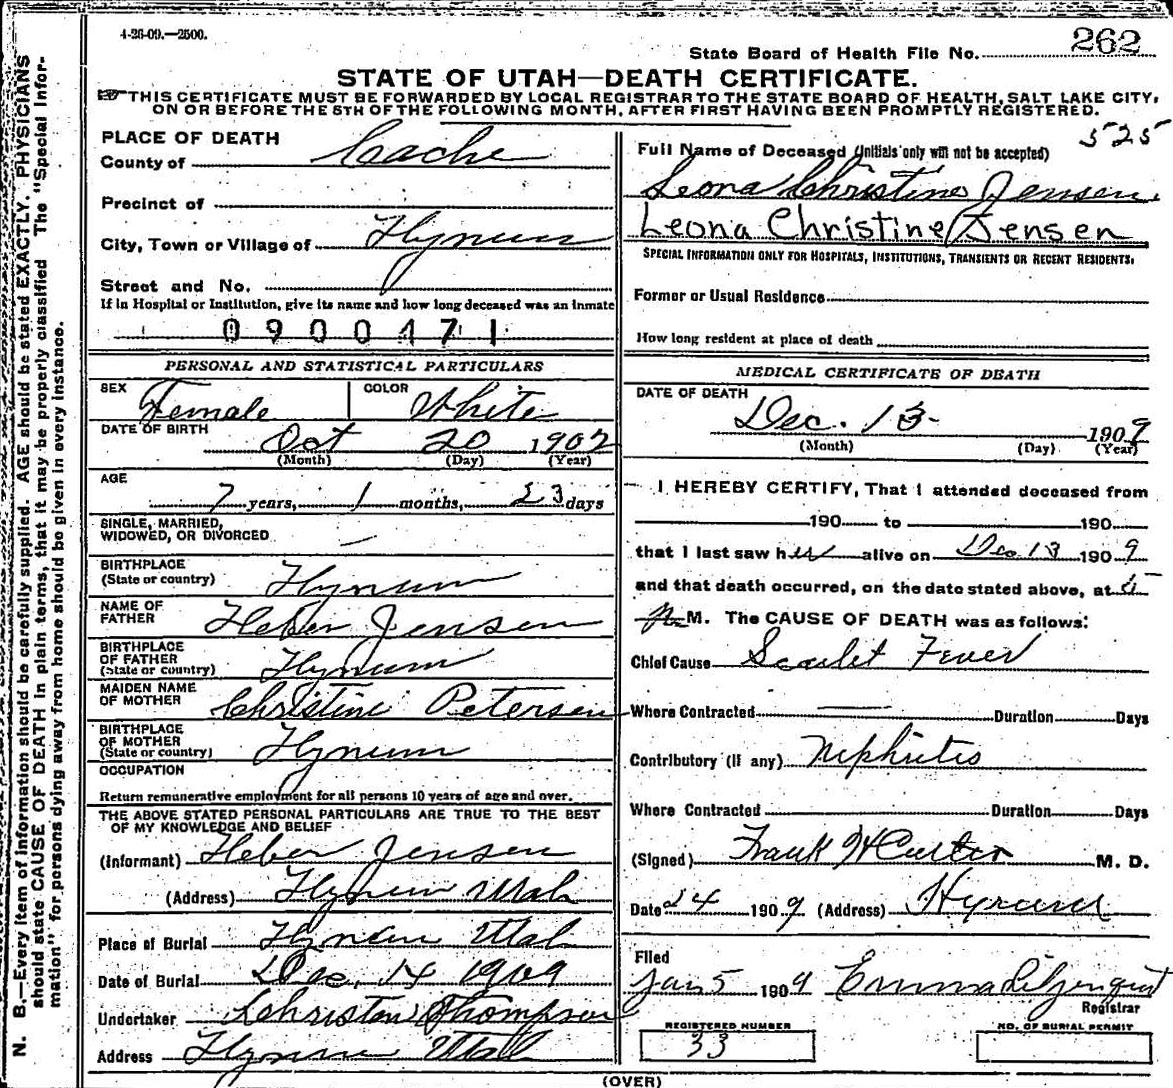 4-26-09.—2500.
State Board of Health File No. 262
STATE OF UTAH—DEATH CERTIFICATE.
THIS CERTIFICATE MUST BE FORWARDED BY LOCAL REGISTRAR TO THE STATE BOARD OF HEALTH, SALT LAKE CITY,
ON OR BEFORE THE 5TH OF THE FOLLOWING MONTH, AFTER FIRST HAVING BEEN PROMPTLY REGISTERED.
525
PLACE OF DEATH
County of Cache
Precinct of
City, Town or Village of Hyrum
Street and No.
If in Hospital or Institution, give its name and how long deceased was an inmate
0900471
PERSONAL AND STATISTICAL PARTICULARS
SEX Female COLOR White
DATE OF BIRTH Oct 20 1902
(Month) (Day) (Year)
AGE
7 years, 1 months, 23 days
SINGLE, MARRIED,
WIDOWED, OR DIVORCED —
BIRTHPLACE
(State or country) Hyrum
NAME OF
FATHER Heber Jensen
BIRTHPLACE
OF FATHER
(State or country) Hyrum
MAIDEN NAME
OF MOTHER Christine Petersen
BIRTHPLACE
OF MOTHER
(State or country) Hyrum
OCCUPATION
Return remunerative employment for all persons 10 years of age and over.
THE ABOVE STATED PERSONAL PARTICULARS ARE TRUE TO THE BEST
OF MY KNOWLEDGE AND BELIEF
(Informant) Heber Jensen
(Address) Hyrum Utah
Place of Burial Hyrum Utah
Date of Burial Dec. 14 1909
Undertaker Christen Thompson
Address Hyrum Utah
Full Name of Deceased (Initials only will not be accepted)
Leona Christine Jensen.
Leona Christine Jensen
SPECIAL INFORMATION ONLY FOR HOSPITALS, INSTITUTIONS, TRANSIENTS OR RECENT RESIDENTS.
Former or Usual Residence
How long resident at place of death
MEDICAL CERTIFICATE OF DEATH
DATE OF DEATH
Dec. 13 1909
(Month) (Day) (Year)
I HEREBY CERTIFY, That I attended deceased from
190 to 190
that I last saw her alive on Dec 13 1909
and that death occurred, on the date stated above, at
M. The CAUSE OF DEATH was as follows:
Chief Cause Scarlet Fever
Where Contracted — Duration Days
Contributory (if any) Nephritis
Where Contracted Duration Days
(Signed) Frank M. D.
Date 24 1909 (Address) Hyrum
Filed
Jan 5 190 Emma Liljenquist
Registrar
REGISTERED NUMBER
33
NO. OF BURIAL PERMIT
(OVER)
N. B.—Every item of information should be carefully supplied. AGE should be stated EXACTLY. PHYSICIANS
should state CAUSE OF DEATH in plain terms, that it may be properly classified The "Special Infor-
mation" for persons dying away from home should be given in every instance.